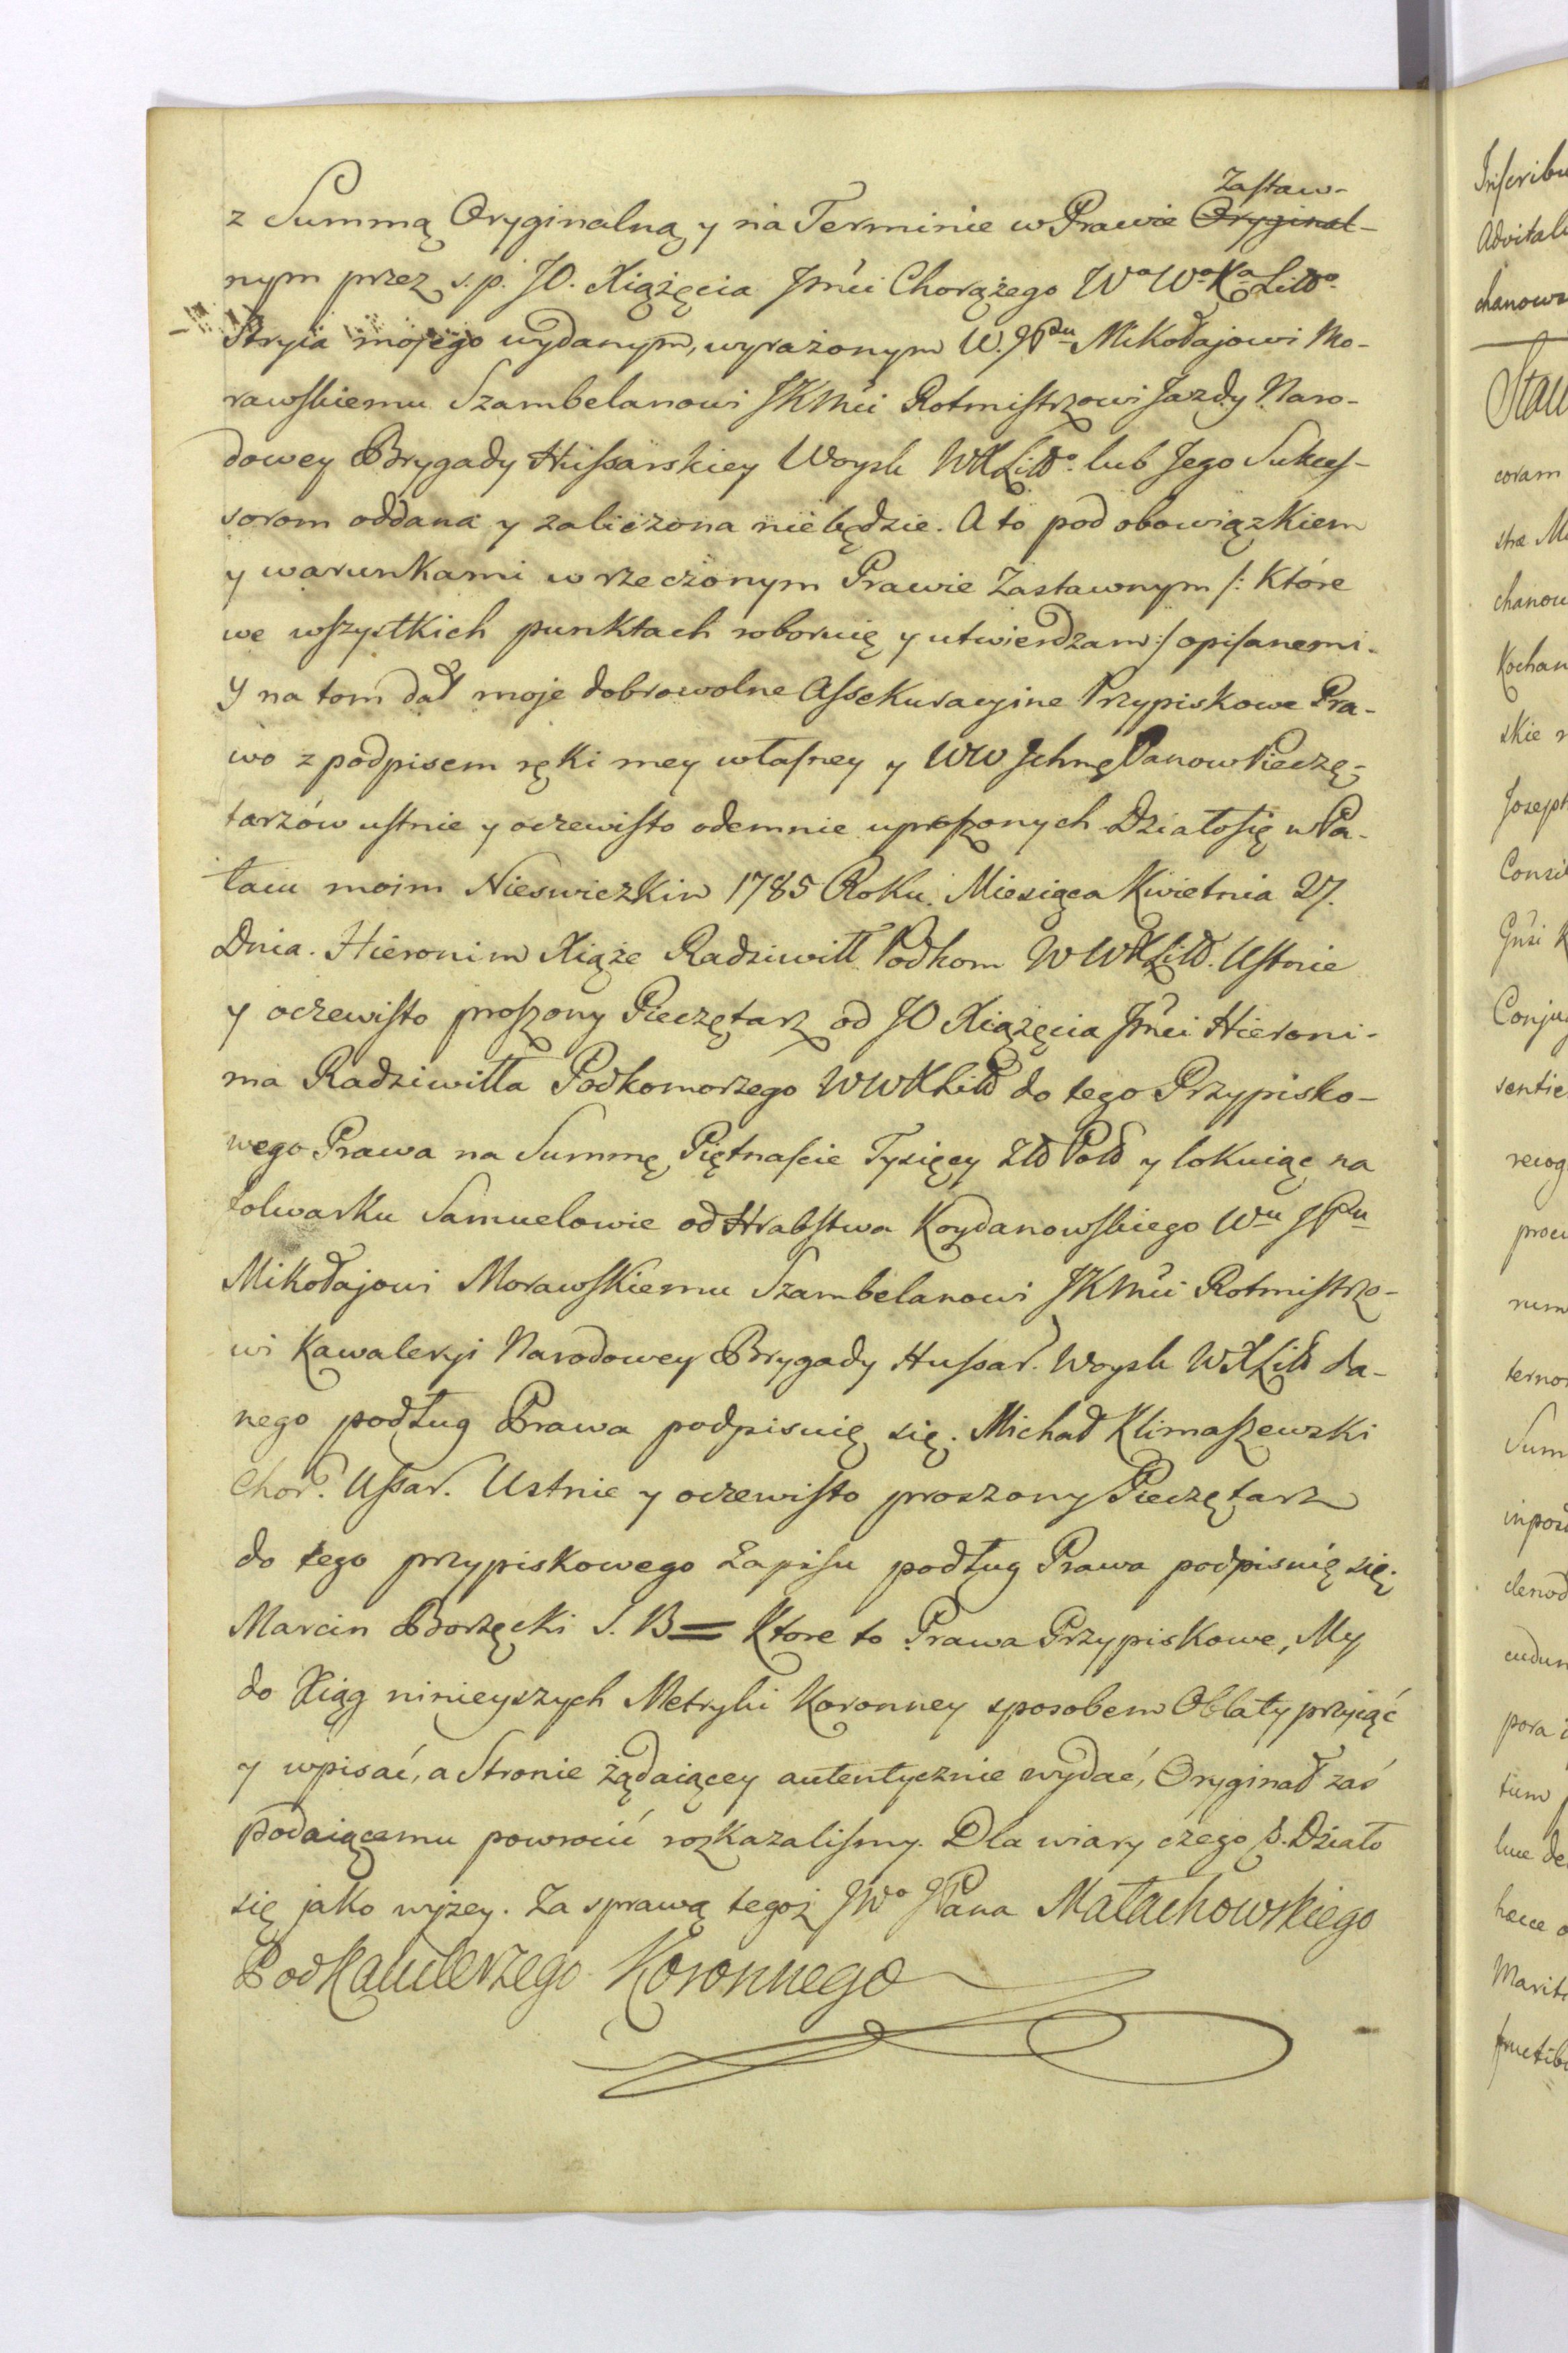 Zastaw-
z Summą Oryginalną y na Terminie w Prawie Oryginal-
nym przez s. p. JO. Xiążęcia Jmći Chorążego Wo Wo Ka Littło
Stryia mojego wydanym, wyrażonym W. JPdu Mikołajowi Mo-
rawskiemu Szambelanowi JKMći Rotmistrzowi Jazdy Naro-
dowey Brygady Hussarskiey Woysk WXLitto. lub Jego Sukces-
sorom oddana y zaliczona niebędzie. A to pod obowiązkiem
y warunkami w rzeczonym Prawie Zastawnym /: Które
we wszystkich punktach roboruię y utwierdzam :/ opisanemi.
Y na tom dał moje dobrowolne Assekuracyine Przypiskowe Pra-
wo z podpisem ręki mey własney y WW Jchmę Panow Pieczę-
tarzów ustnie y oczewisto odemnie uproszonych Działosię w Pa-
łacu moim Nieswiezkim 1785 Roku. Miesiąca Kwietnia 27.
Dnia. Hieronim Xiąże Radziwiłł Podkom WWXLitt. Ustnie
y oczewisto proszony Pieczętarz od JO Xiążęcia Jmći Hieroni-
ma Radziwiłła Podkomorzego WWXLitt do tego Przypisko-
wego Prawa na Summę Piętnascie Tysięcy Złł Poll y lokuiąc na
folwarku Samuelowie od Hrabstwa Koydanowskiego Wu JPdu
Mikołajowi Morawskiemu Szambelanowi JKMći Rotmistrzo-
wi Kawaleryi Narodowey Brygady Hussar. Woysk WXLitt da-
nego podług Prawa podpisuię się. Michał Klimaszewski
Chor. Ussar. Ustnie y oczewisto proszony Pieczętarz
do tego przypiskowego Zapisu podług Prawa podpisuię się.
Marcin Borzęcki S. B = Ktore to Prawa Przypiskowe, My
do Xiąg ninieyszych Metryki Koronney sposobem Oblaty przyiąć
y wpisać, a Stronie żądaiącey autentycznie wydać, Oryginał zaś
podaiącemu powrocić rozkazalismy. Dla wiary czego &. Działo
się jako wyżey. Za sprawą tegoż JWo JPana Małachowskiego
Podkanclerzego Koronnego